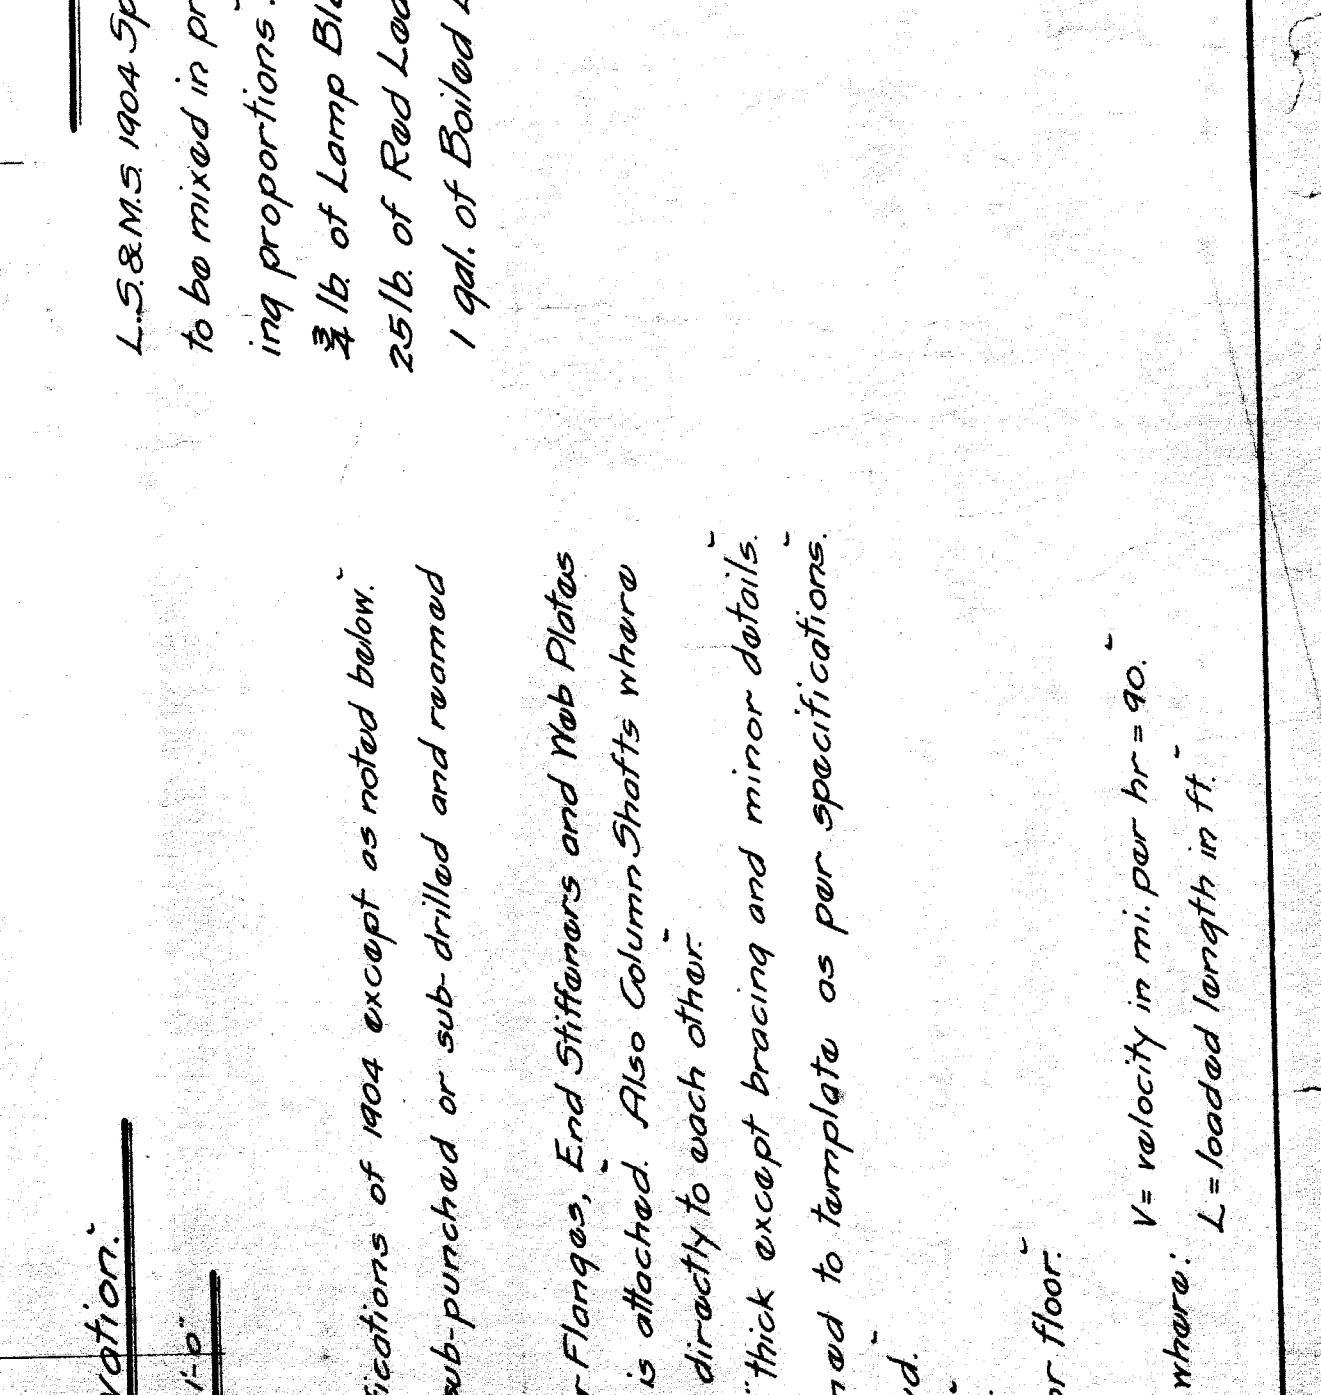 vation.
1'-0"
ications of 1904 except as noted below.
sub-punched or sub-drilled and reamed
r Flanges, End Stiffeners and Web Plates
is attached. Also Column Shafts where
directly to each other.
" thick except bracing and minor details.
ned to template as per specifications.
ed.
or floor.
V = velocity in mi. per hr = 90.
where:
L = loaded length in ft.
L.S.& M.S. 1904 Sp
to be mixed in pr
ing proportions.
3/4 lb. of Lamp Bla
25 lb. of Red Lea
1 gal. of Boiled L